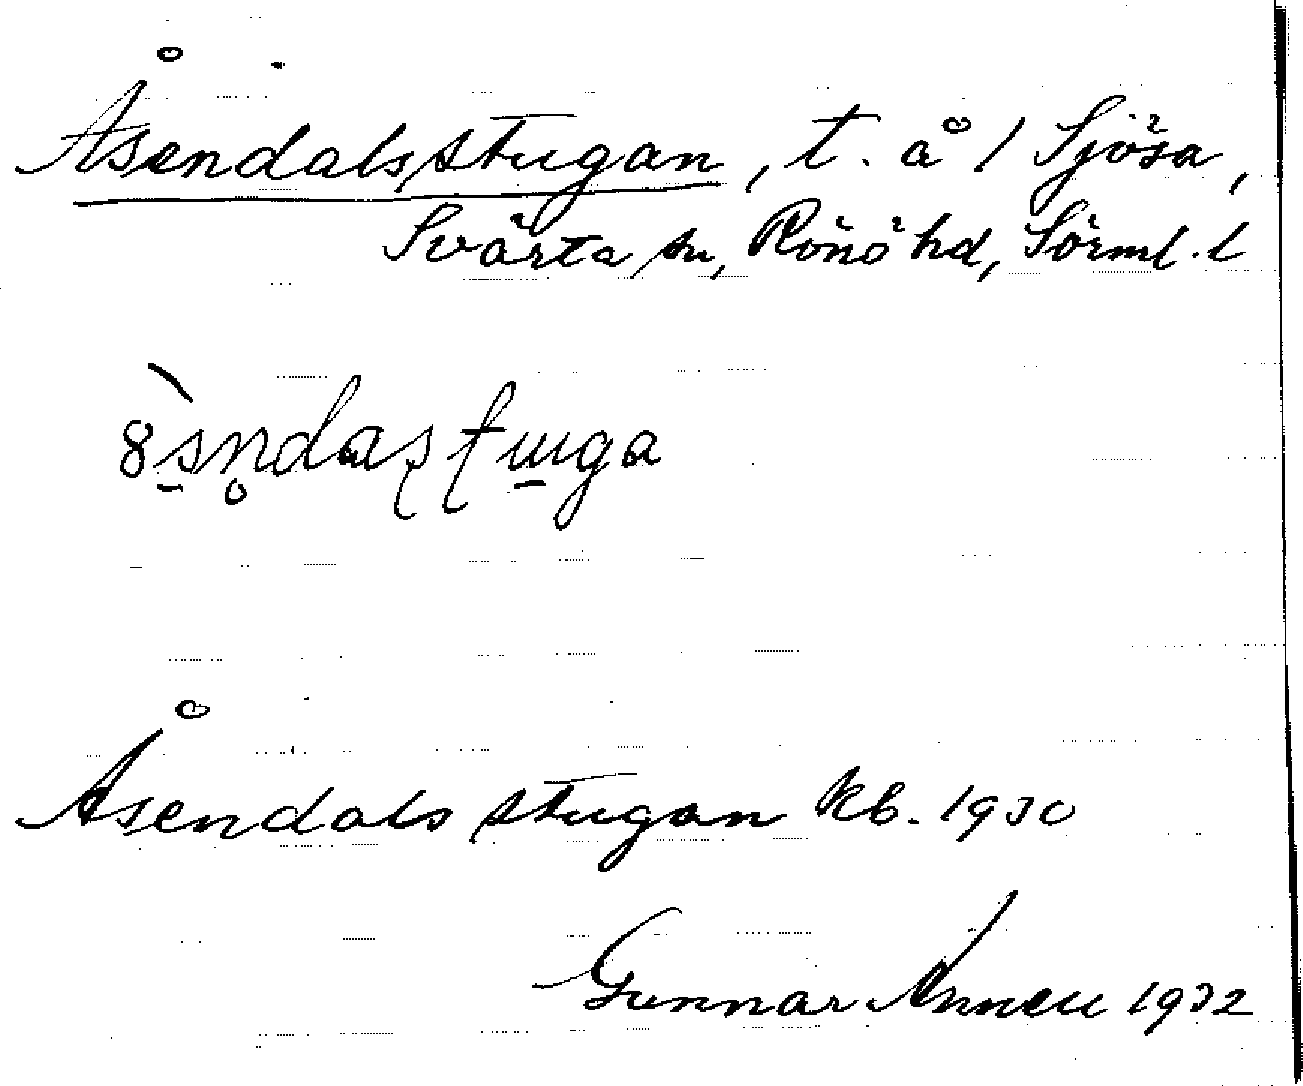 Åsendalsstugan, t. å / Sjösa,
Svärta sn, Rönö hd, Sörml. l
Åsendalsstugan kb. 1930
Gunnar Annell 1932